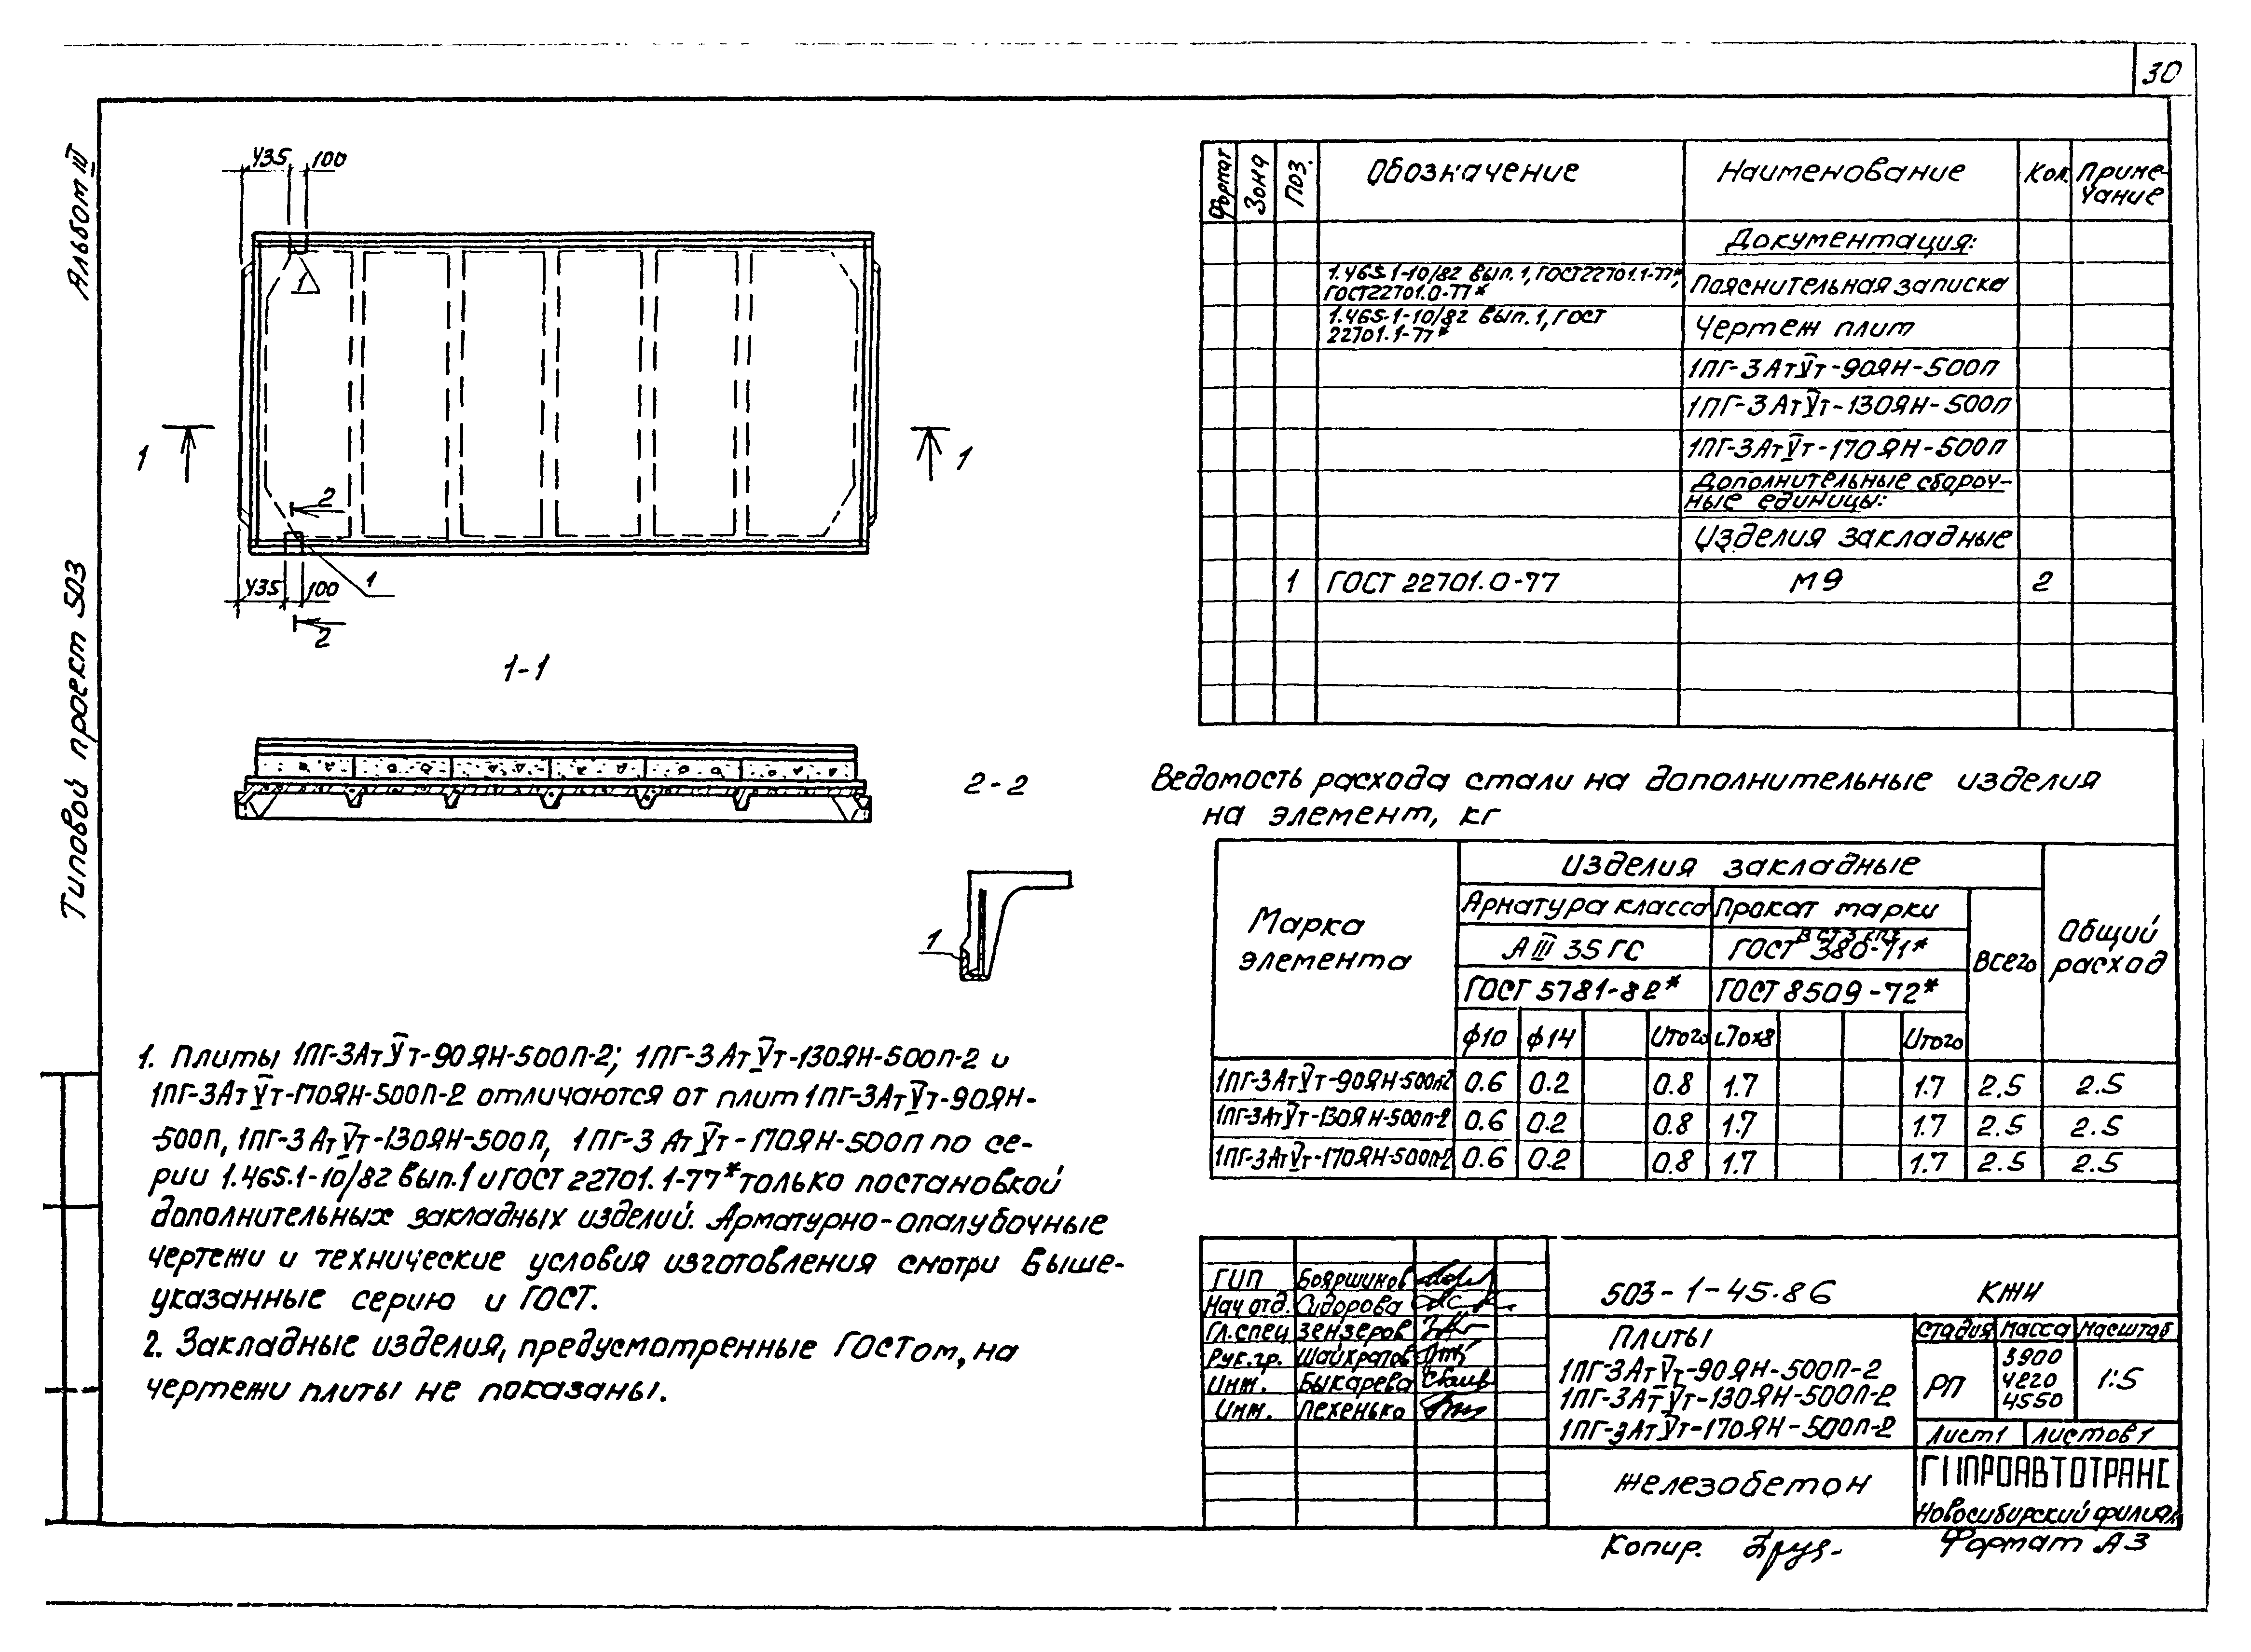 30
Альбом III
Типовой проект 503
435 100
1
1 1
2
1
435 100
2
1-1
2-2
1
1. Плиты 1ПГ-3АтVт-90ЯН-500П-2; 1ПГ-3АтVт-130ЯН-500П-2 и
1ПГ-3АтVт-170ЯН-500П-2 отличаются от плит 1ПГ-3АтVт-90ЯН-
-500П, 1ПГ-3АтVт-130ЯН-500П, 1ПГ-3АтVт-170ЯН-500П по се-
рии 1.465.1-10/82 вып.1 и ГОСТ 22701.1-77* только постановкой
дополнительных закладных изделий. Арматурно-опалубочные
чертежи и технические условия изготовления смотри выше-
указанные серию и ГОСТ.
2. Закладные изделия, предусмотренные ГОСТом, на
чертежи плиты не показаны.
Формат Зона Поз. Обозначение Наименование Кол. Приме-
чание
Документация:
1.465.1-10/82 вып.1, ГОСТ22701.1-77*,
ГОСТ22701.0-77* Пояснительная записка
1.465.1-10/82 вып.1, ГОСТ
22701.1-77* Чертеж плит
1ПГ-3АтVт-90ЯН-500П
1ПГ-3АтVт-130ЯН-500П
1ПГ-3АтVт-170ЯН-500П
Дополнительные сбороч-
ные единицы:
Изделия закладные
1 ГОСТ 22701.0-77 М9 2
Ведомость расхода стали на дополнительные изделия
на элемент, кг
Марка
элемента
Изделия закладные
Общий
расход
Арматура класса Прокат марки
Всего
АIII 35ГС ВСт3кп2
ГОСТ 380-71*
ГОСТ 5781-82* ГОСТ 8509-72*
ф10 ф14 Итого L70x8 Итого
1ПГ-3АтVт-90ЯН-500П-2 0.6 0.2 0.8 1.7 1.7 2.5 2.5
1ПГ-3АтVт-130ЯН-500П-2 0.6 0.2 0.8 1.7 1.7 2.5 2.5
1ПГ-3АтVт-170ЯН-500П-2 0.6 0.2 0.8 1.7 1.7 2.5 2.5
ГИП Бояршинов
Нач отд. Сидорова
Гл.спец Зензеров
Рук.гр. Шайхратов
Инж. Быкарева
Инж. Пехенько
503-1-45.86 КЖИ
Плиты
1ПГ-3АтVт-90ЯН-500П-2
1ПГ-3АтVт-130ЯН-500П-2
1ПГ-3АтVт-170ЯН-500П-2
Стадия Масса Масштаб
РП 3900
4220
4550 1:5
Лист 1 Листов 1
Железобетон
ГИПРОАВТОТРАНС
Новосибирский филиал
Копир. Формат А3